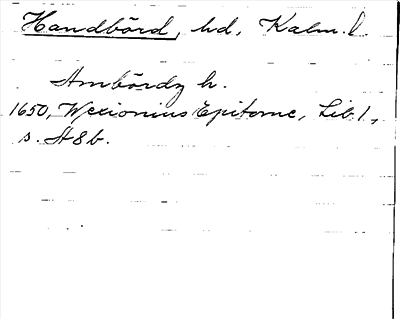 Handbörd, hd, Kalm. l.
Ambördz h.
1650, Wexionius Epitome, Lib. 1,
s. A 8 b.